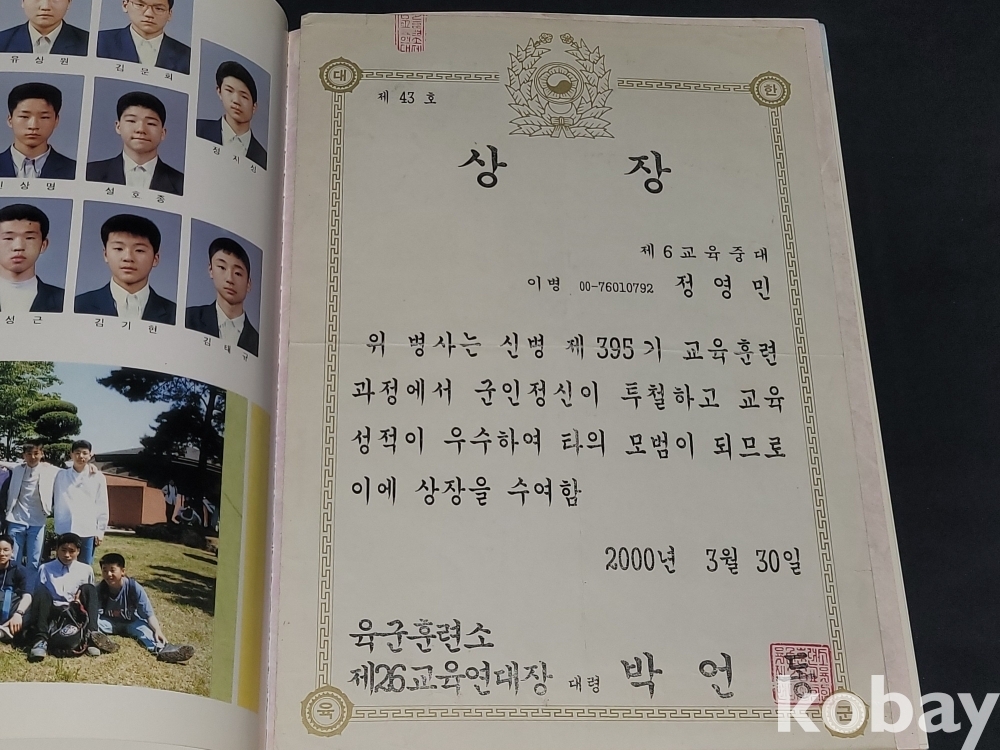 유상원
김문희
정지성
상명
설호종
성근
김기현
김태규
대
한
제 43 호
상 장
제6교육중대
이병 00-76010792 정영민
위 병사는 신병 제395기 교육훈련
과정에서 군인정신이 투철하고 교육
성적이 우수하여 타의 모범이 되므로
이에 상장을 수여함
2000년 3월 30일
육군훈련소
제26교육연대장 대령 박언
육
군
kobay